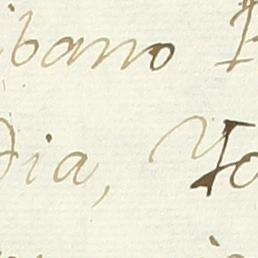 ibano
dia, Yo